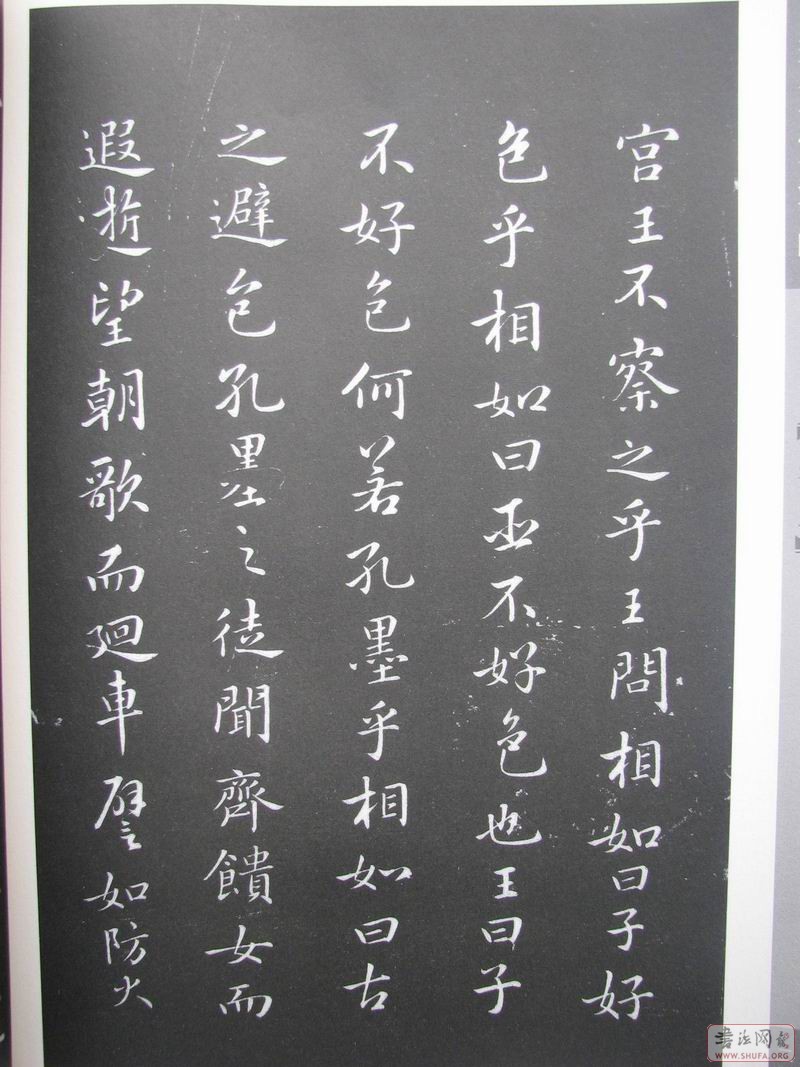 宮王不察之乎王問相如曰子好
色乎相如曰臣不好色也王曰子
不好色何若孔墨乎相如曰古
之避色孔墨之徒聞齊饋女而
遐逝望朝歌而迴車譬如防火
書法网
WWW.SHUFA.ORG